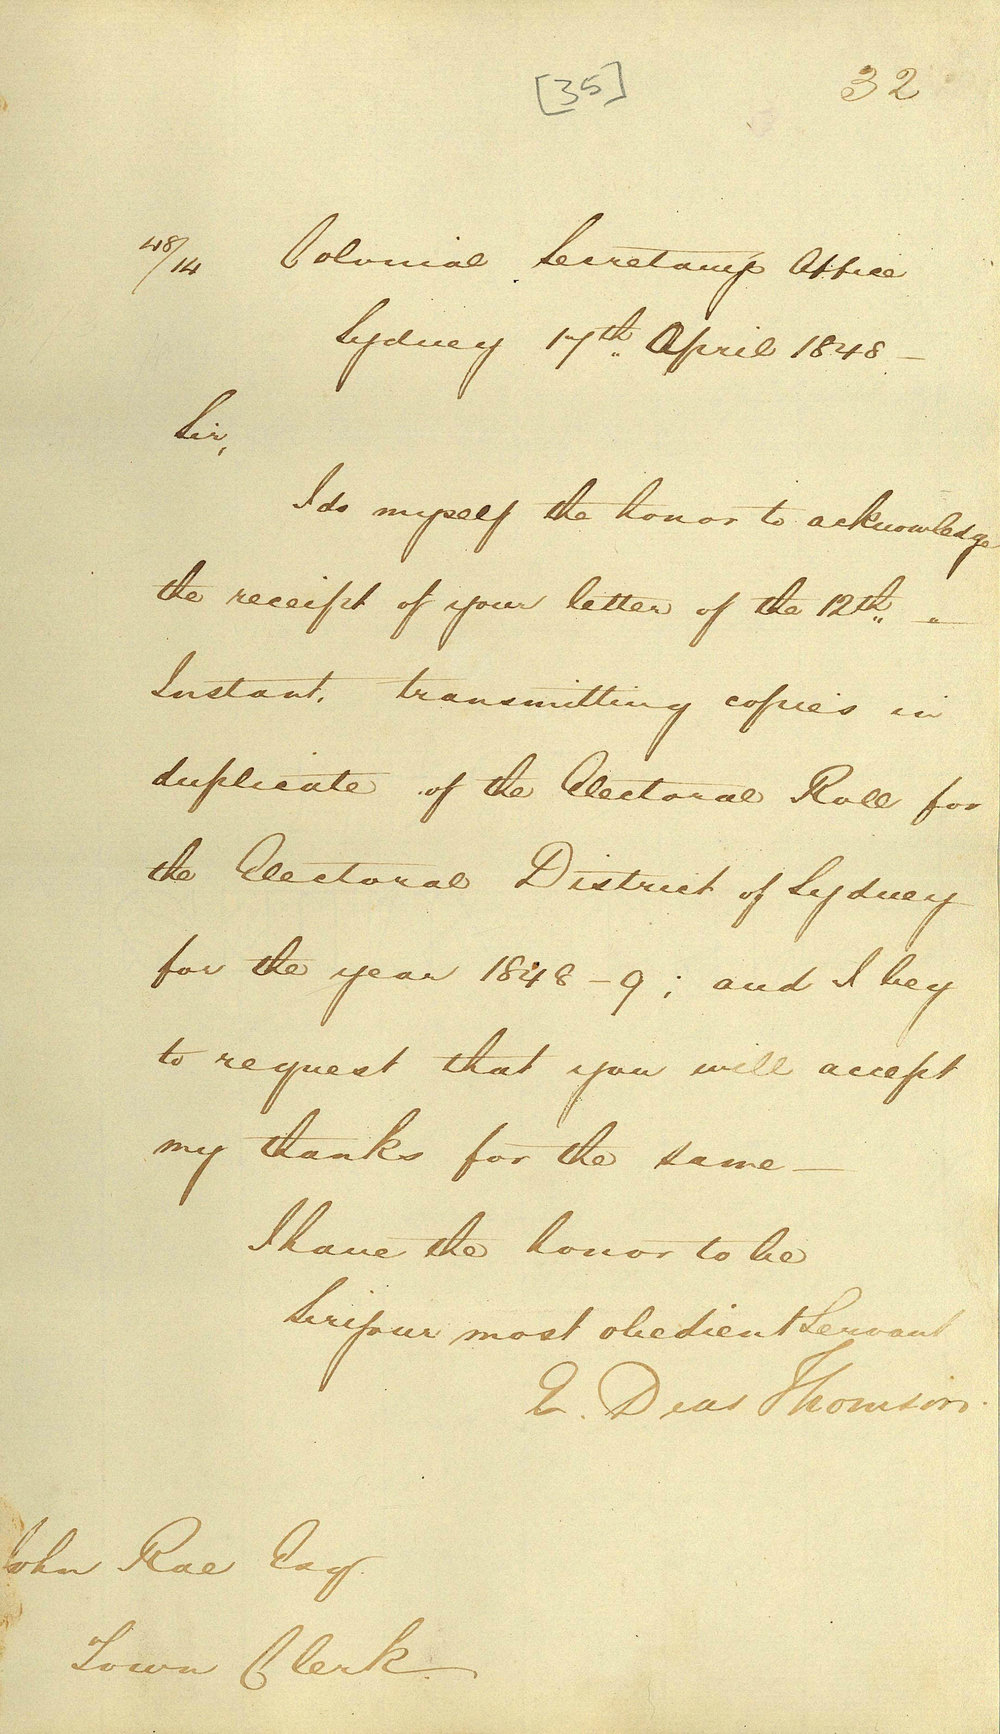 [35]
32
48/14 Colonial Secretarys Office
Sydney 17th April 1848 -
Sir,
I do myself the honor to acknowledge
the receipt of your letter of the 12th -
Instant, transmitting copies in
duplicate of the Electoral Roll for
the Electoral District of Sydney
for the year 1848-9; and I beg
to request that you will accept
my thanks for the same -
I have the honor to be
Sir, your most obedient Servant
E. Deas Thomson.
John Rae Esqr
Town Clerk